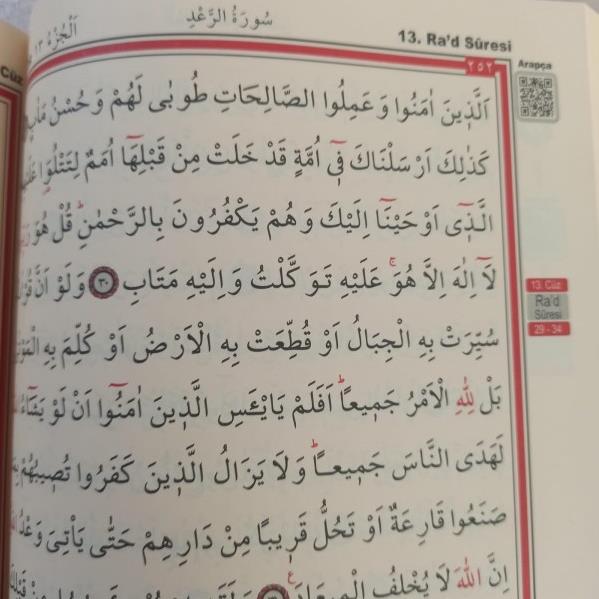 اَلْجُزْءُ ١٣
سُورَةُ الرَّعْدِ
13. Ra'd Sûresi
Cüz
٢٥٢
Arapça
اَلَّذ۪ينَ اٰمَنُوا وَعَمِلُوا الصَّالِحَاتِ طُوبٰى لَهُمْ وَحُسْنُ مَاٰبٍ
كَذٰلِكَ اَرْسَلْنَاكَ ف۪ٓي اُمَّةٍ قَدْ خَلَتْ مِنْ قَبْلِهَٓا اُمَمٌ لِتَتْلُوَ۬ا
الَّذ۪ٓي اَوْحَيْنَٓا اِلَيْكَ وَهُمْ يَكْفُرُونَ بِالرَّحْمٰنِۜ قُلْ هُوَ
لَٓا اِلٰهَ اِلَّا هُوَۚ عَلَيْهِ تَوَكَّلْتُ وَاِلَيْهِ مَتَابِ ﴿٣٠﴾ وَلَوْ اَنَّ
سُيِّرَتْ بِهِ الْجِبَالُ اَوْ قُطِّعَتْ بِهِ الْاَرْضُ اَوْ كُلِّمَ بِهِ
بَلْ لِلّٰهِ الْاَمْرُ جَم۪يعًاۜ اَفَلَمْ يَايْـَٔسِ الَّذ۪ينَ اٰمَنُٓوا اَنْ لَوْ يَشَٓاءُ
لَهَدَى النَّاسَ جَم۪يعًاۜ وَلَا يَزَالُ الَّذ۪ينَ كَفَرُوا تُص۪يبُهُمْ
صَنَعُوا قَارِعَةٌ اَوْ تَحُلُّ قَر۪يبًا مِنْ دَارِهِمْ حَتّٰى يَأْتِيَ وَعْدُ
اِنَّ اللّٰهَ لَا يُخْلِفُ الْم۪يعَادَ۟
13. Cüz
Ra'd
Sûresi
29 - 34